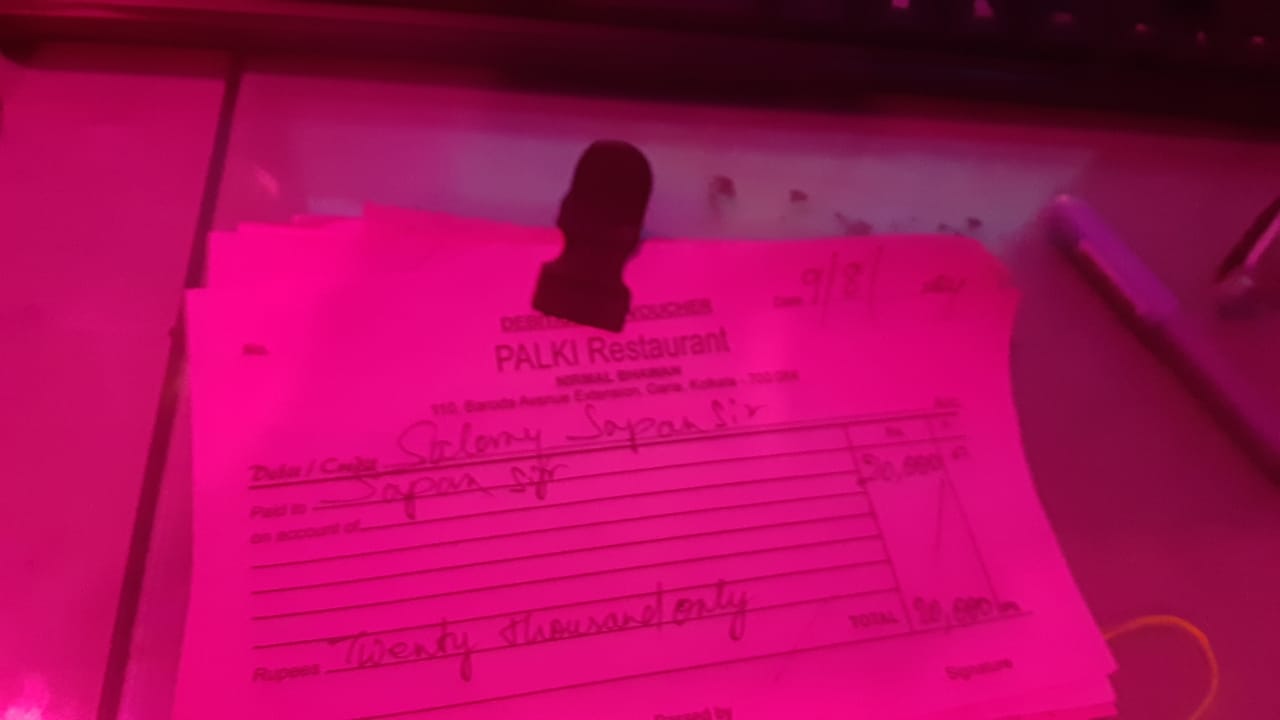 Date 9/8/
DEBIT VOUCHER
No.
PALKI Restaurant
NIRMAL BHAWAN
110, Baroda Avenue Extension, Garia, Kolkata - 700 084
Debit / Credit Salary Sapan Sir
Rs.
Paid to Sapan Sir 20,000
on account of
TOTAL 20,000
Rupees Twenty thousand only
Signature
Passed by